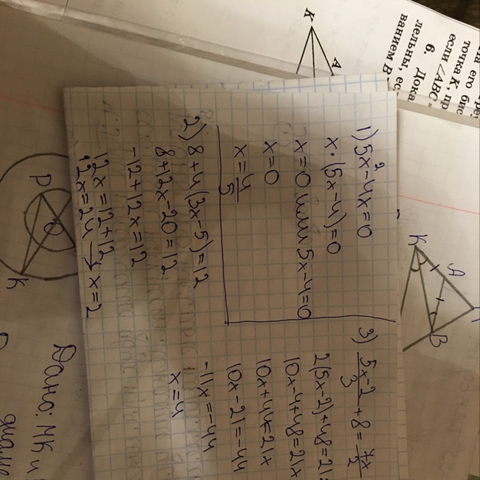 1) 5x²-4x=0
x·(5x-4)=0
x=0 или 5x-4=0
x=0
x=4/5
2) 8+4(3x-5)=12
8+12x-20=12
-12+12x=12
12x=12+12
12x=24 → x=2
3) 5x-2/3+8=7x/2
2(5x-2)+48=21x
10x-4+48=21x
10x+44=21x
10x-21=-44
-11x=-44
x=4
его бис
точка K, пр
если ∠ABC
6. Дока
лельны, ес
ванием B
K
A
K
A
B
P
O
K
Дано: MK и